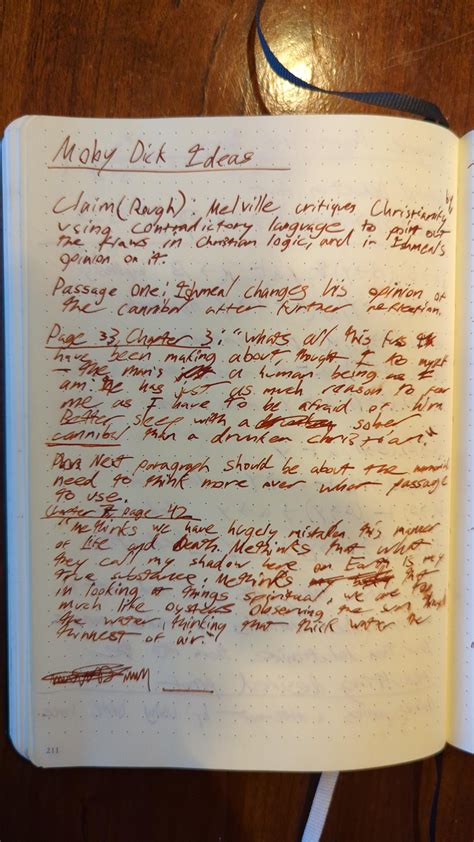 Moby Dick Ideas
Claim (Rough): Melville critiques Christianity by
using contradictory language to point out
the flaws in Christian logic, and in Ishmeal's
opinion on it.
Passage one: Ishmeal changes his opinion of
the cannibal after further reflection.
Page 33, Chapter 3: "whats all this fuss
have been making about, thought I to myself
– the man's a human being as I
am. he has just as much reason to fear
me as I have to be afraid of him
Better sleep with a sober
cannibal than a drunken christian."
Next paragraph should be about the
need to think more over what passage
to use.
Chapter 7, page 42
"Methinks we have hugely mistaken this matter
of Life and Death. Methinks that what
they call my shadow here on Earth is my
true substance. Methinks that
in looking at things spiritual, we are too
much like oysters observing the sun through
the water, thinking that thick water the
thinnest of air."
211